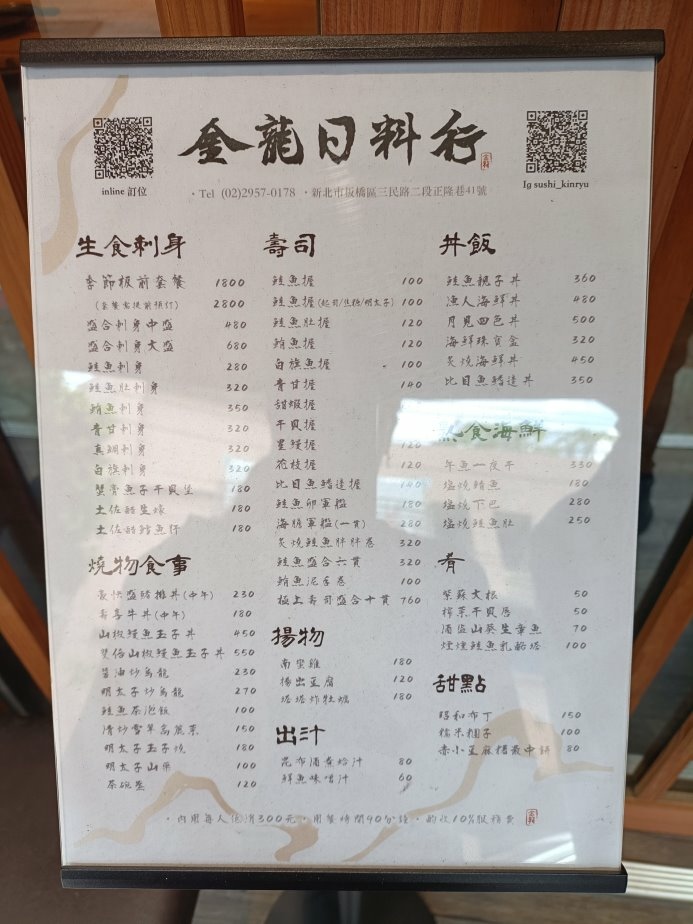 金龍日料行
inline 訂位
・Tel (02)2957-0178 ・新北市板橋區三民路二段正隆巷41號
Ig sushi_kinryu
生食刺身
季節板前套餐 1800
(套餐需提前預訂) 2800
盛合刺身中盛 480
盛合刺身大盛 680
鮭魚刺身 280
鮭魚肚刺身 320
鮪魚刺身 350
青甘刺身 320
真鯛刺身 320
白旗刺身 320
蟹膏魚子干貝堡 180
土佐醋生蠔 180
土佐醋鱈魚肝 180
燒物食事
豪快盛豬排丼(中午) 230
壽享牛丼(中午) 180
山椒鰻魚玉子丼 450
雙倍山椒鰻魚玉子丼 550
醬油炒烏龍 230
明太子炒烏龍 270
鮭魚茶泡飯 100
清炒雪翠高麗菜 150
明太子玉子燒 180
明太子山藥 100
茶碗蒸 120
壽司
鮭魚握 100
鮭魚握(起司/焦糖/明太子) 100
鮭魚肚握 120
鮪魚握 120
白旗魚握 100
青甘握 140
甜蝦握
干貝握
星鰻握 120
花枝握 120
比目魚鰭邊握 140
鮭魚卵軍艦 180
海膽軍艦(一貫) 280
炙燒鮭魚胖胖卷 320
鮭魚盛合六貫 320
鮪魚泥手卷 100
極上壽司盛合十貫 760
揚物
南蠻雞 180
揚出豆腐 120
塔塔炸牡蠣 180
出汁
昆布酒煮蛤汁 80
鮮魚味噌汁 60
丼飯
鮭魚親子丼 360
漁人海鮮丼 480
月見四色丼 500
海鮮珠寶盒 320
炙燒海鮮丼 450
比目魚鰭邊丼 350
熱食海鮮
午魚一夜干 330
塩燒鯖魚 180
塩燒下巴 280
塩燒鮭魚肚 250
肴
紫蘇大根 50
榨菜干貝唇 50
酒盜山葵生章魚 70
煙燻鮭魚乳酪塔 100
甜點
昭和布丁 150
糯米糰子 100
赤小豆麻糬最中餅 80
・內用每人低消300元・用餐時間90分鐘・酌收10%服務費